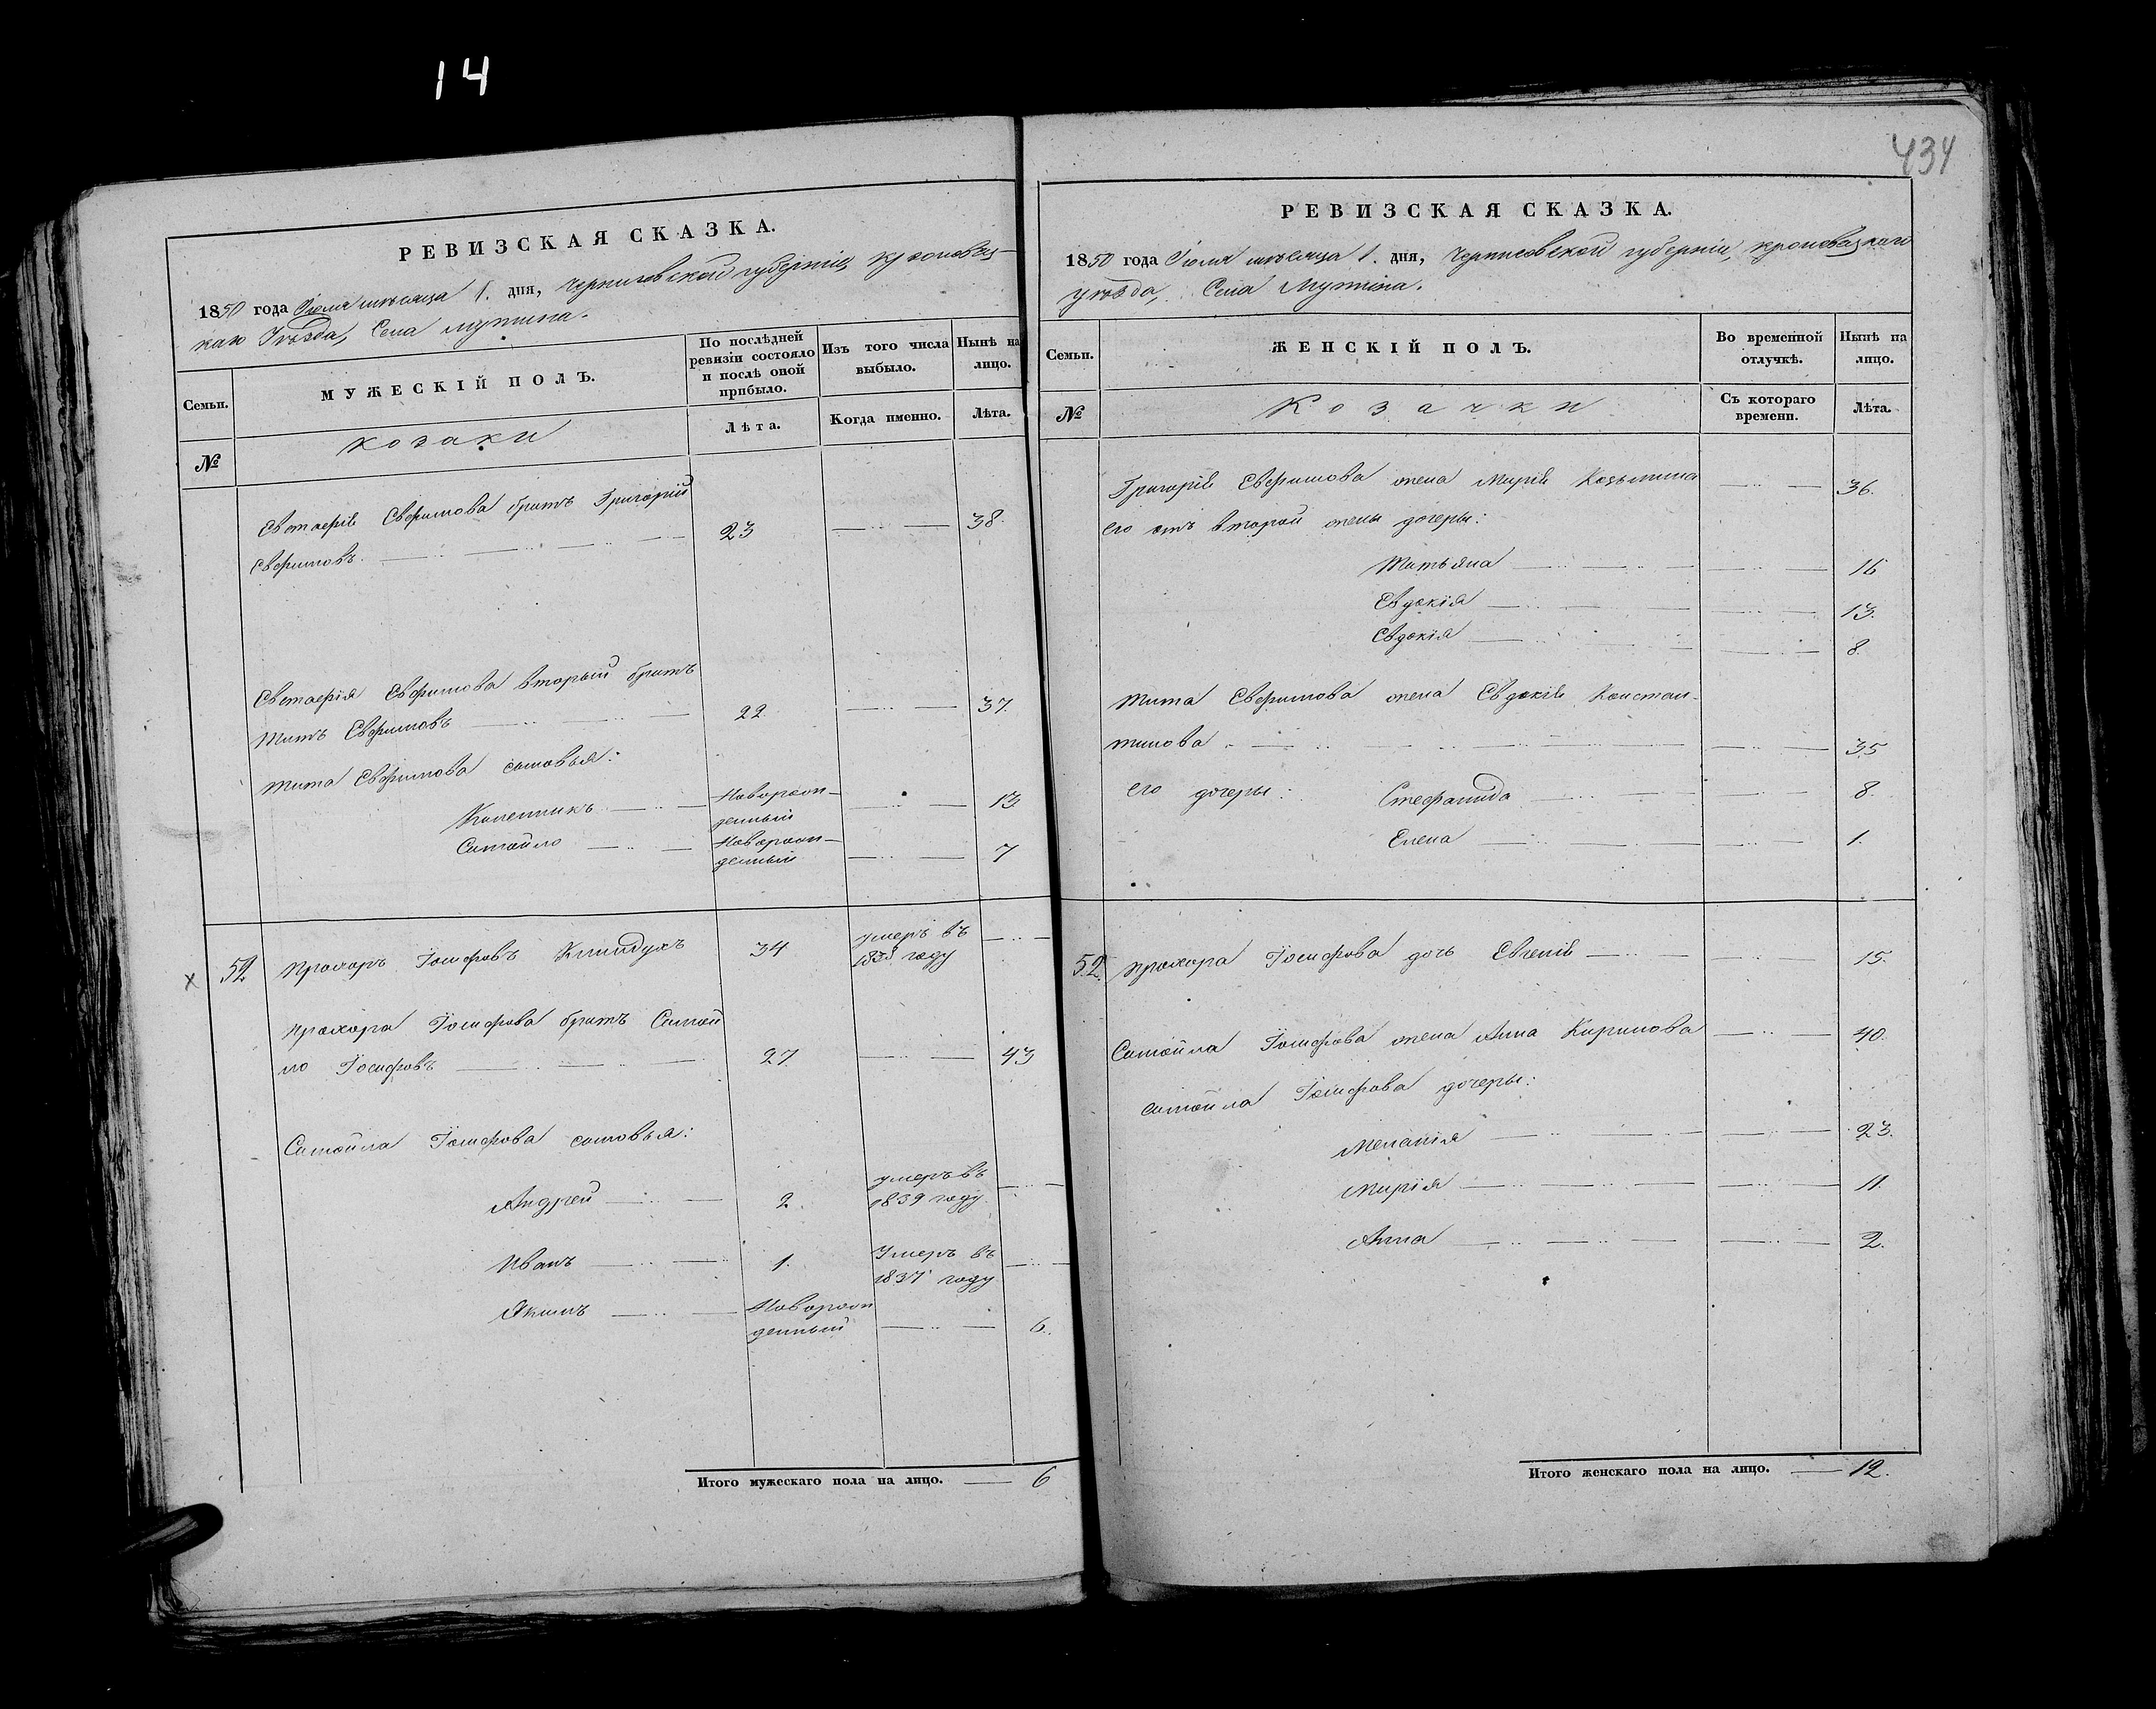 14
434
РЕВИЗСКАЯ СКАЗКА.
1850 года Іюля мѣсяца 1. дня, Черниговской губерніи, Кролевец-
каго Уѣзда, Села Мутина.
Семьи.
МУЖЕСКІЙ ПОЛЪ.
По послѣдней ревизіи состояло и послѣ оной прибыло.
Изъ того числа выбыло.
Нынѣ на лицо.
№
Козаки
Лѣта.
Когда именно.
Лѣта.
Евстафія Ефимова братъ Григорій
Ефимовъ. 23 38.
Евстафія Ефимова вторый братъ
Титъ Ефимовъ 22 37.
Тита Ефимова сыновья:
Новорож-
денный 13
Самойло Новорож-
денный 7
52 Прохоръ Іосифовъ 34 умеръ въ
1838 году
Прохора Іосифова братъ Самой
ло Іосифовъ 27. 43
Самойла Іосифова сыновья:
Андрей 2. умеръ въ
1839 году
Иванъ 1. Умеръ въ
1837 году
Якимъ Новорож
денный 6.
Итого мужескаго пола на лицо. 6
РЕВИЗСКАЯ СКАЗКА.
1850 года Іюля мѣсяца 1. дня, Черниговской губерніи, Кролевецкаго
Уѣзда, Села Мутина.
Семьи.
ЖЕНСКІЙ ПОЛЪ.
Во временной отлучкѣ.
Нынѣ на лицо.
№
Козачки
Съ котораго времени.
Лѣта.
Григорія Ефимова жена Марія Козьмина 36.
его отъ второй жены дочери:
Татьяна 16
Евдокія 13.
Евдокія 8.
Тита Ефимова жена Евдокія Констан-
тинова 35
его дочери: Стефанида 8.
Елена 1.
52. Прохора Іосифова дочь Евгенія 15.
Самойла Іосифова жена Анна Кирилова 40.
Самойла Іосифова дочери:
Меланія 23.
Марія 11.
Анна 2.
Итого женскаго пола на лицо. 12.